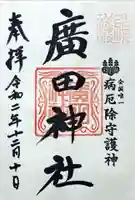 全国唯一
病厄除守護神
廣田神社
奉拝
令和二年十二月十日